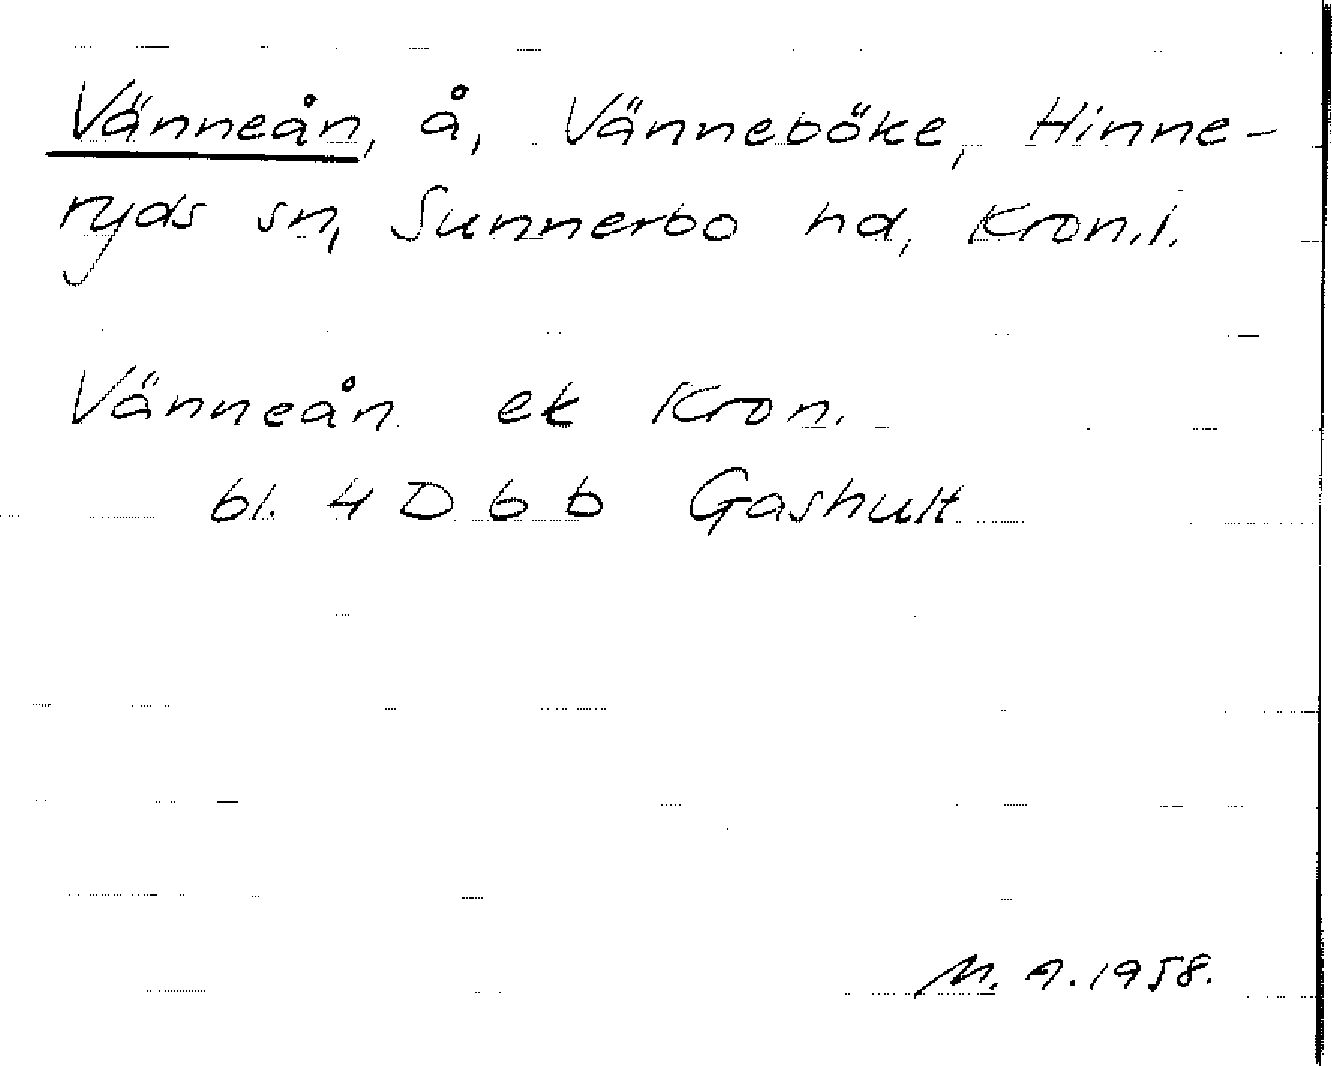 Vänneån, å, Vänneböke, Hinne-
ryds sn, Sunnerbo hd, Kron.l.
Vänneån ek Kron.
bl. 4 D 6 b Gashult
M. A. 1958.